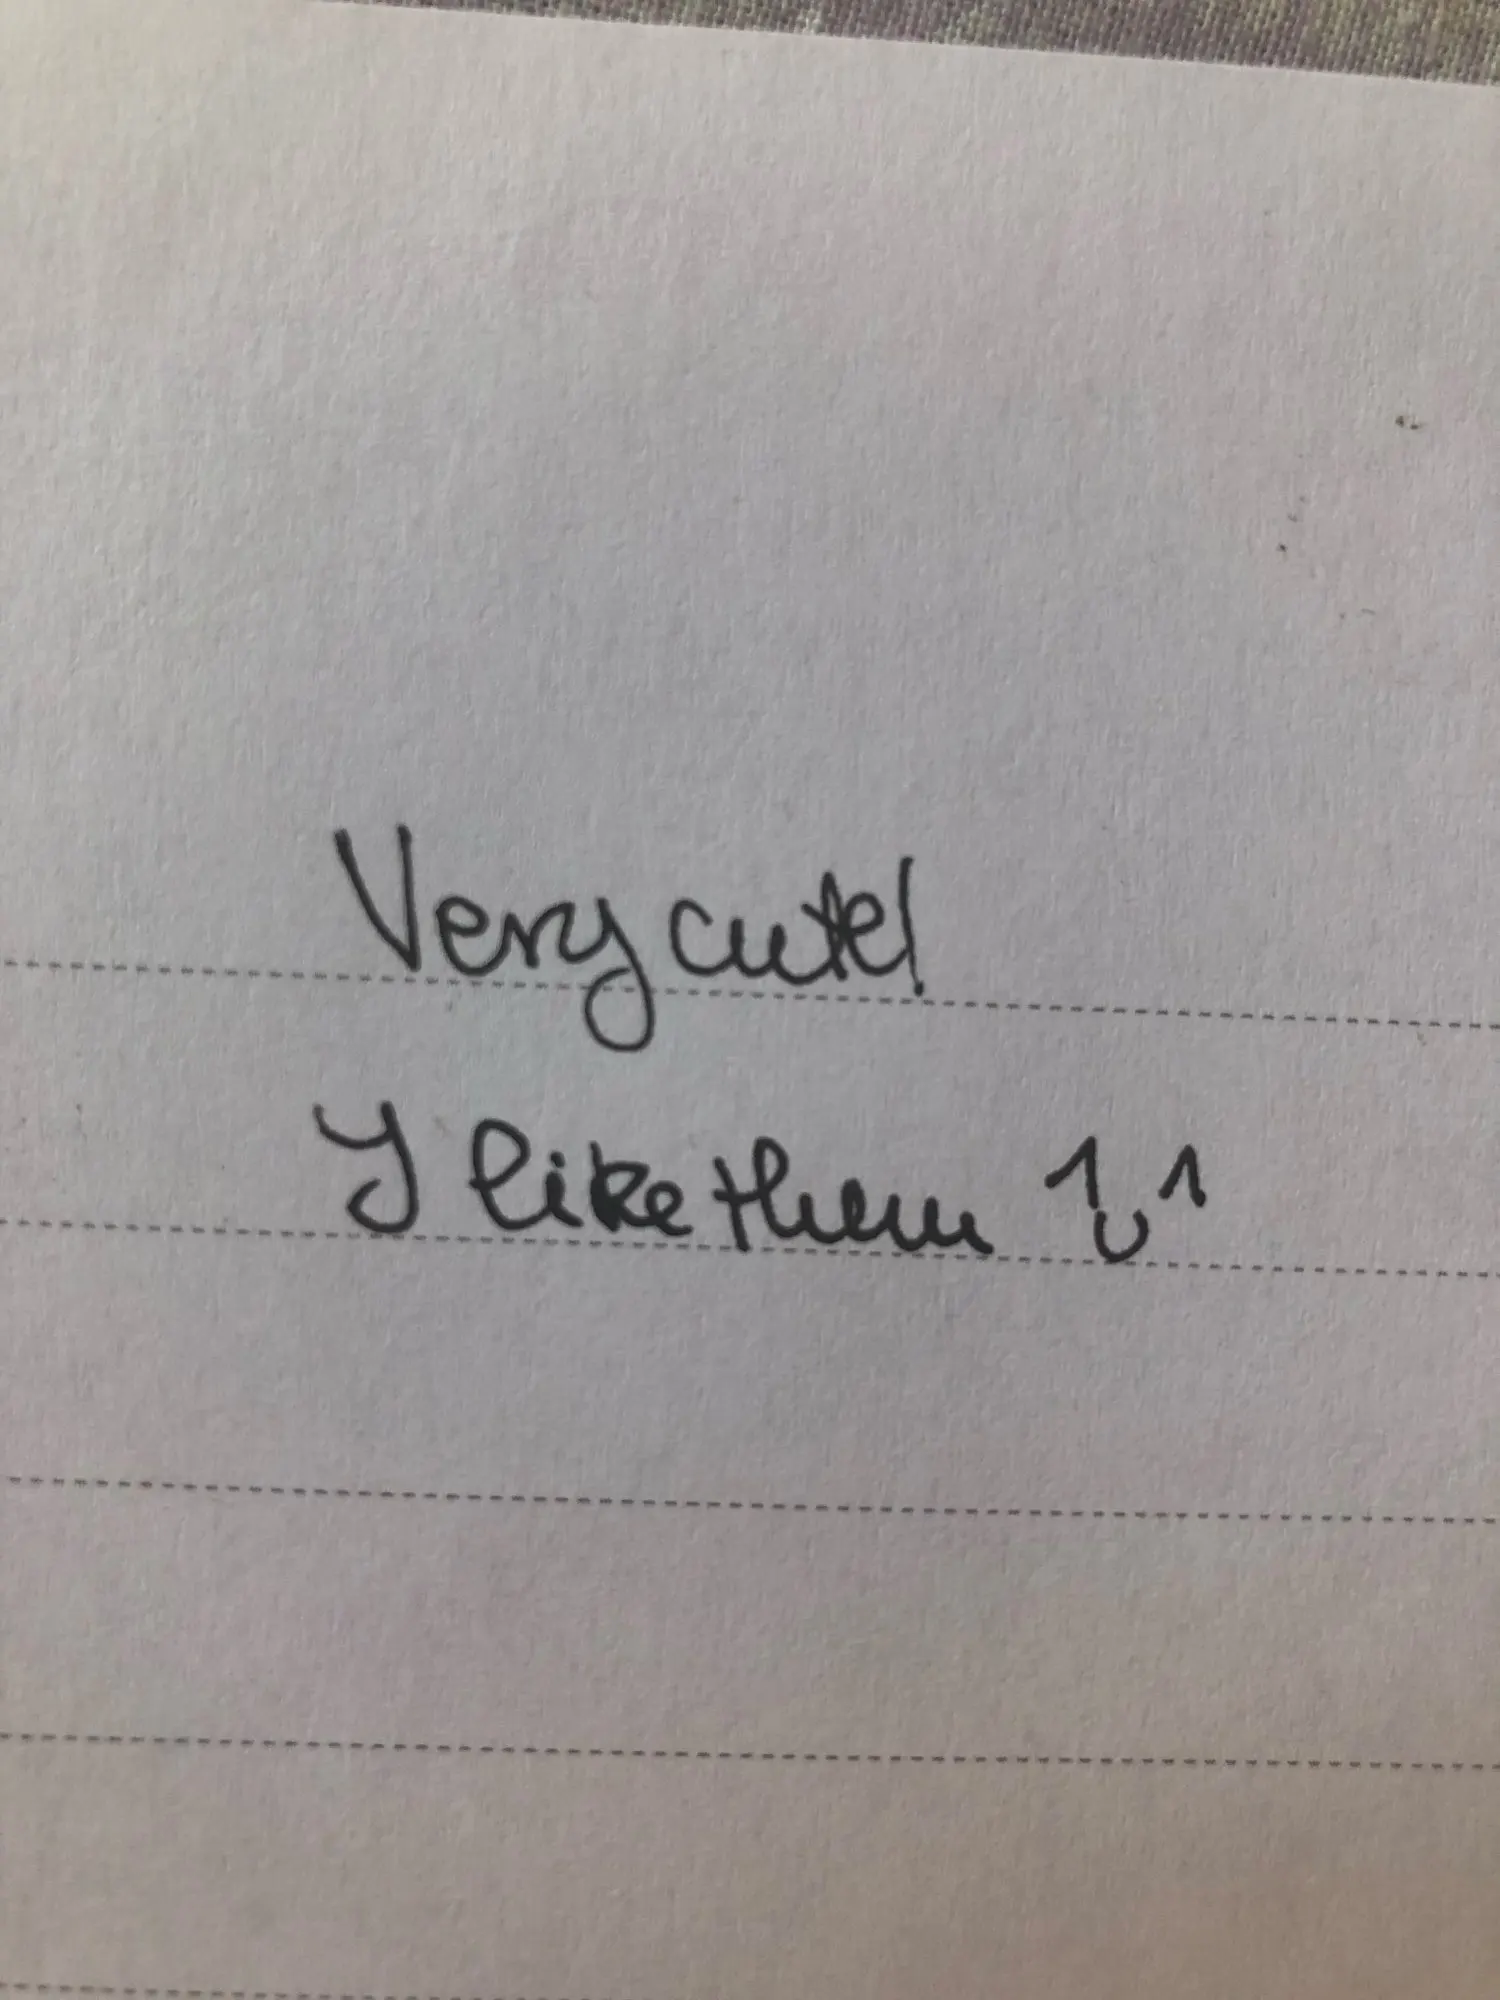 Very cute!
I like them ^u^